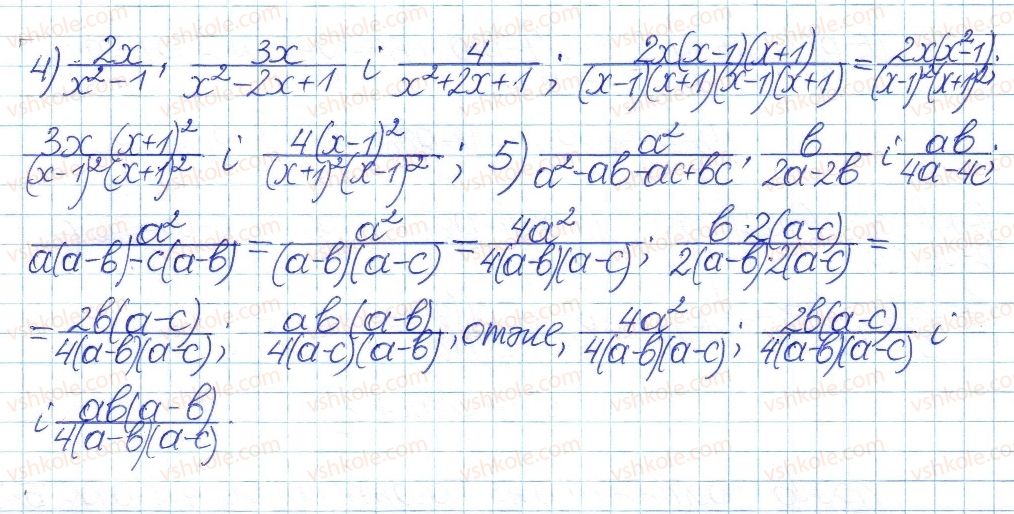 4) 2x/(x²-1), 3x/(x²-2x+1) і 4/(x²+2x+1); 2x(x-1)(x+1)/((x-1)(x+1)(x-1)(x+1)) = 2x(x²-1)/((x-1)²(x+1)²);
3x(x+1)²/((x-1)²(x+1)²) і 4(x-1)²/((x+1)²(x-1)²); 5) a²/(a²-ab-ac+bc), b/(2a-2b) і ab/(4a-4c);
a²/(a(a-b)-c(a-b)) = a²/((a-b)(a-c)) = 4a²/(4(a-b)(a-c)); b·2(a-c)/(2(a-b)·2(a-c)) =
= 2b(a-c)/(4(a-b)(a-c)); ab(a-b)/(4(a-c)(a-b)), отже, 4a²/(4(a-b)(a-c)); 2b(a-c)/(4(a-b)(a-c)) і
і ab(a-b)/(4(a-b)(a-c)).